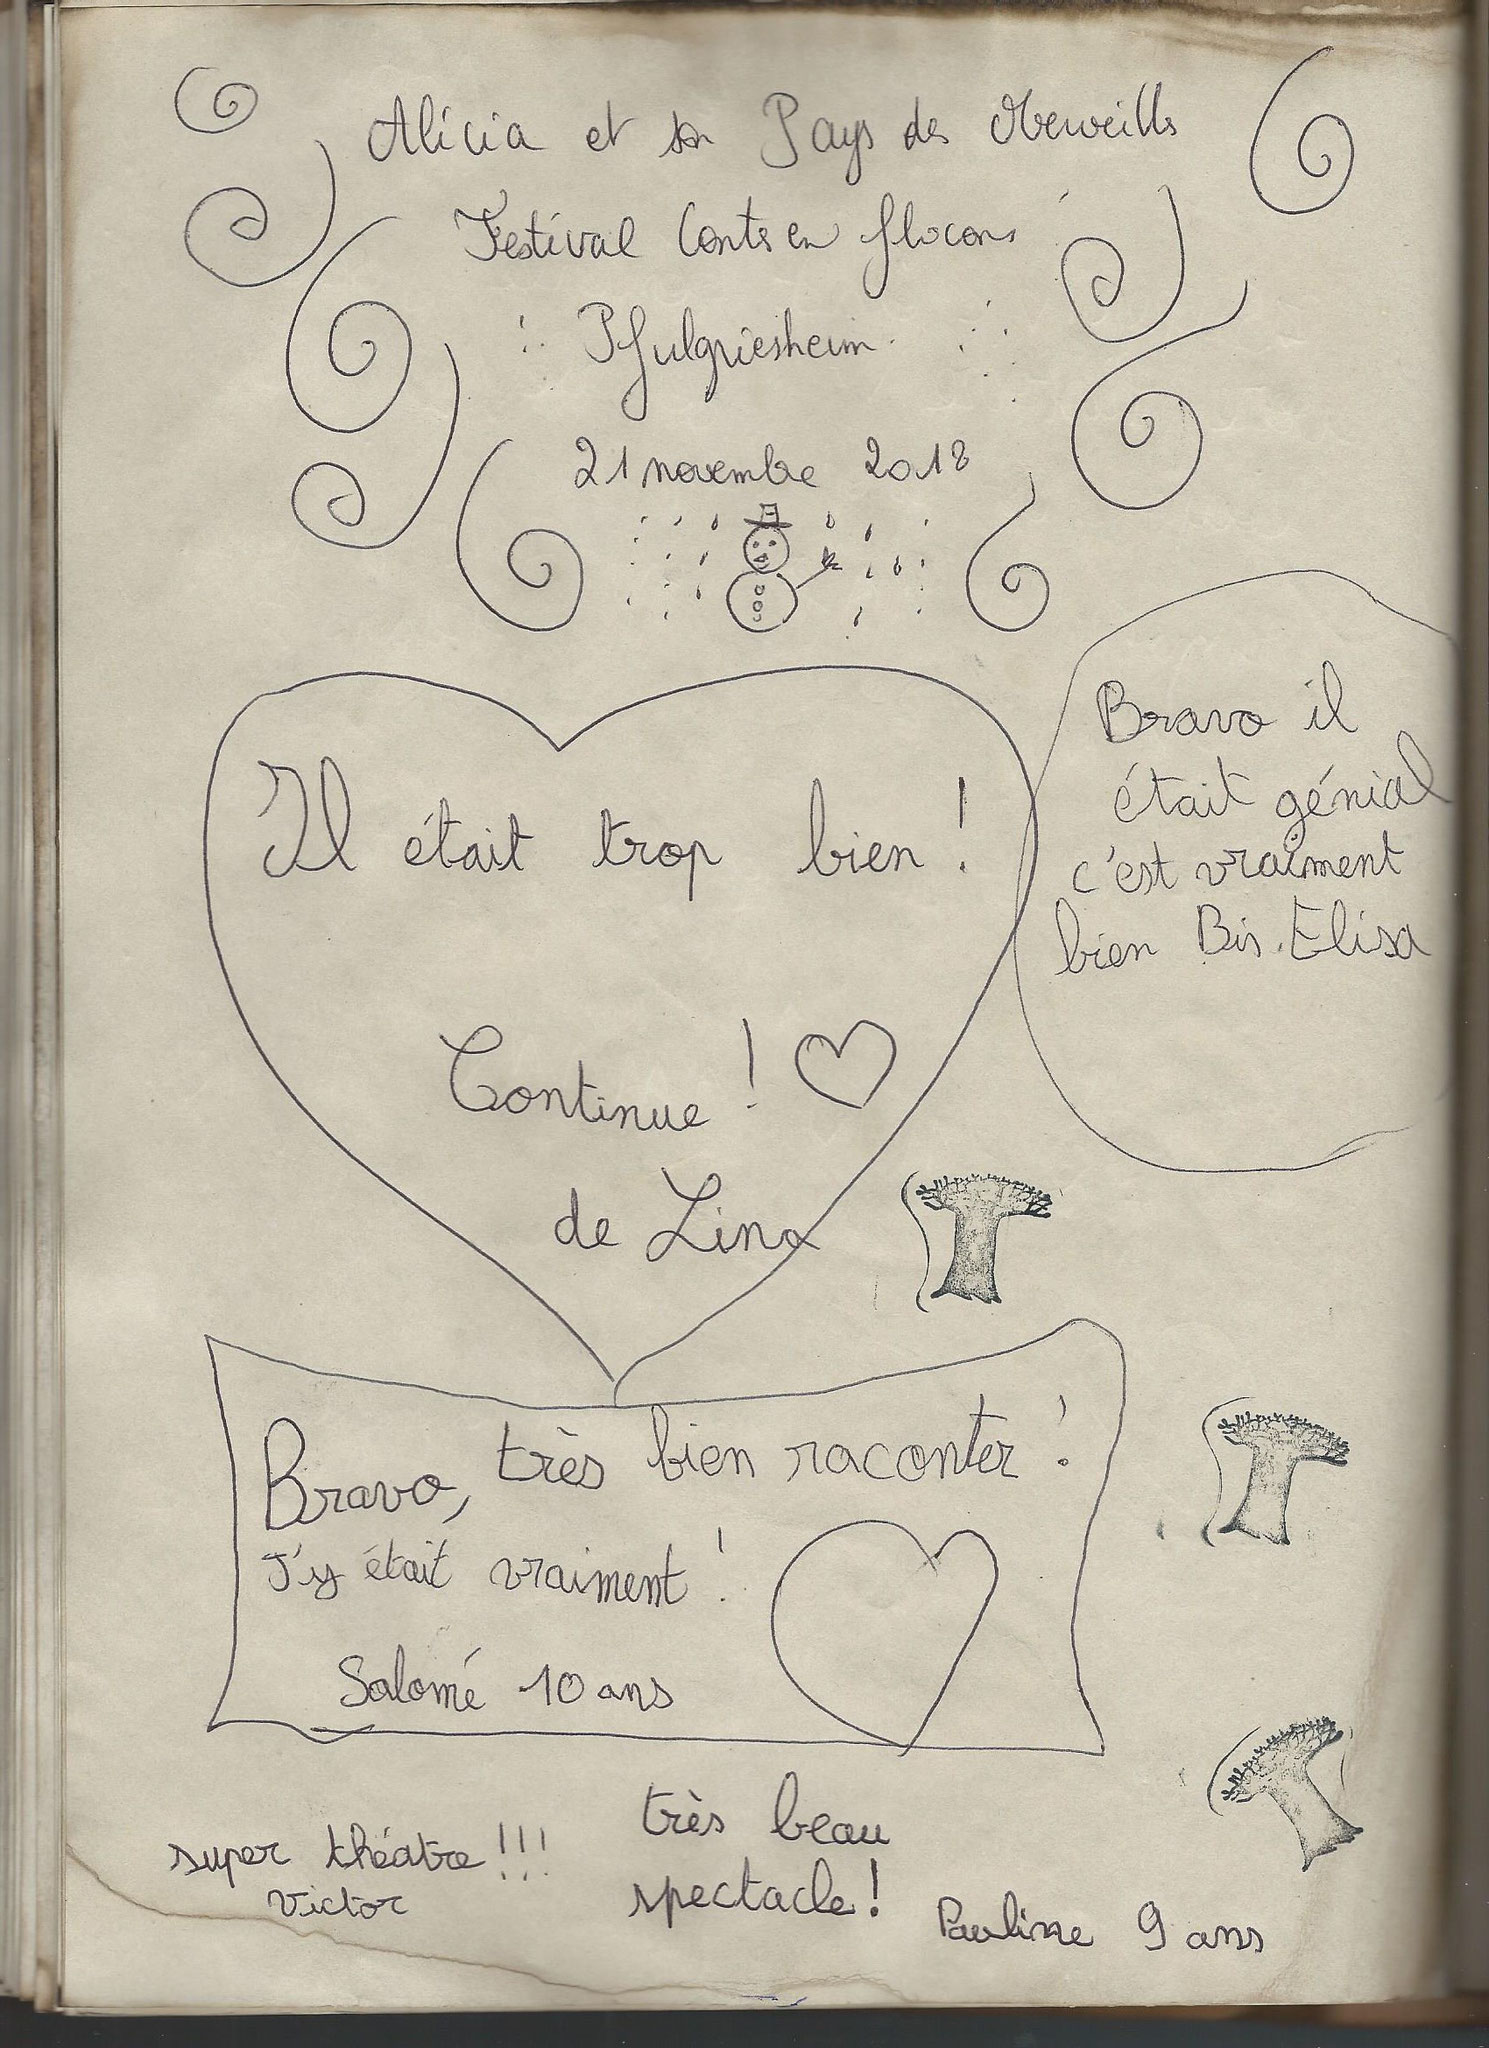 Alicia et son Pays des Merveills
Festival Conts en flocons
Pfulgriesheim
21 novembre 2018
Il était trop bien !
Continue !
de Lina
Bravo il
était génial
c'est vraiment
bien Bis. Elisa
Bravo, très bien raconter !
J'y était vraiment !
Salomé 10 ans
super théatre !!!
Victor
très beau
spectacle !
Pauline 9 ans